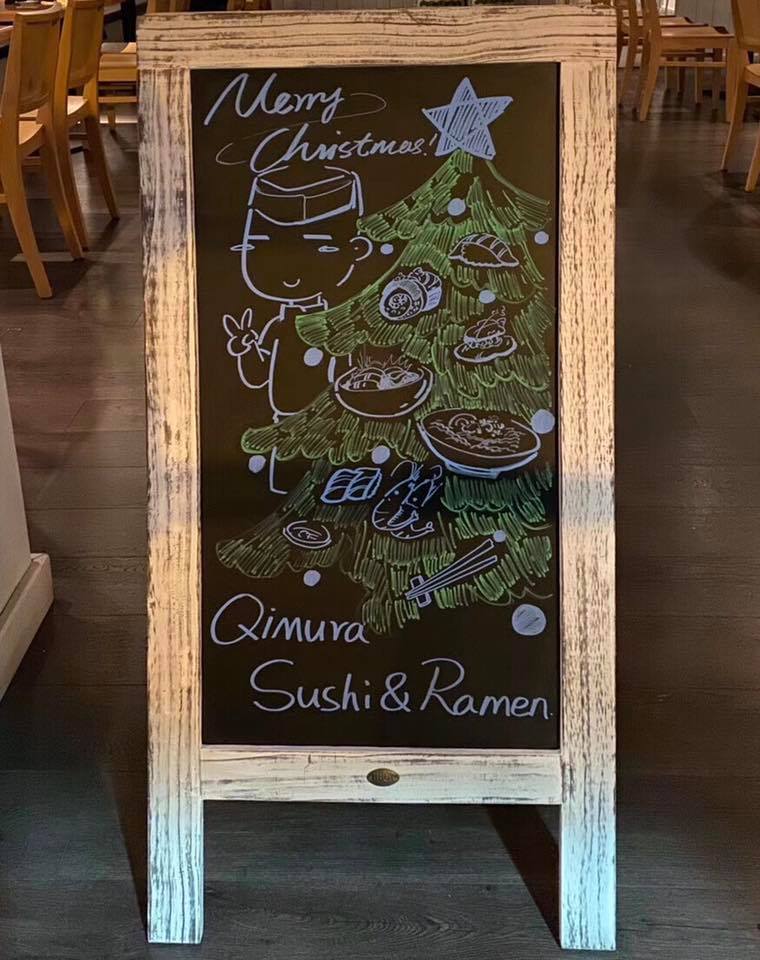 Merry
Christmas!
Qimura
Sushi & Ramen.